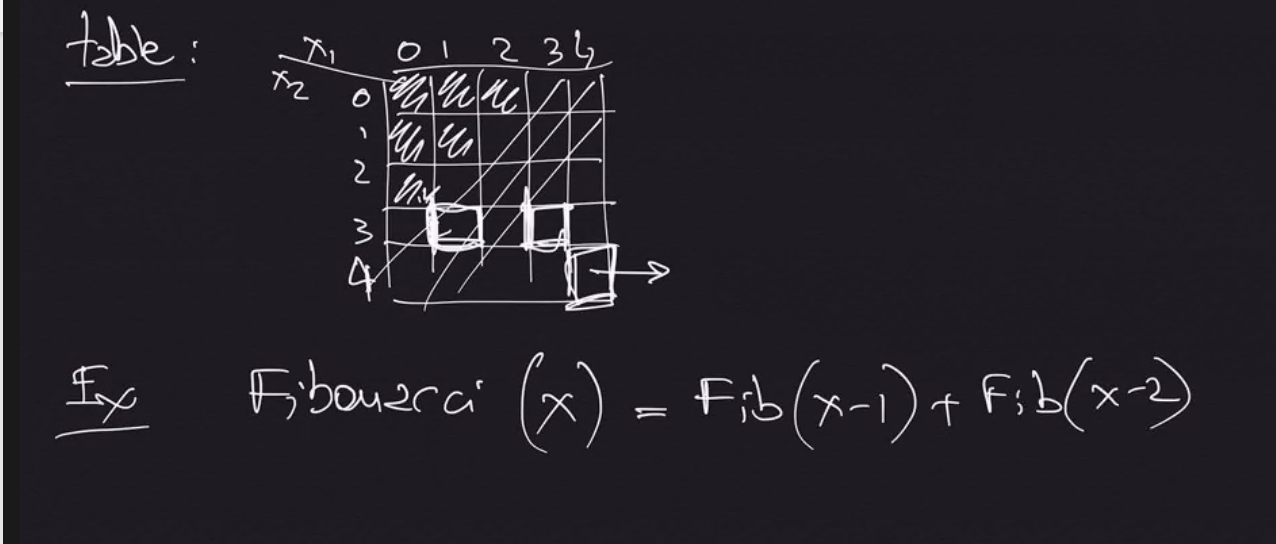 table:
x₁ 0 1 2 3 4
x₂
0
1
2
3
4
Ex Fibonacci (x) = Fib(x-1) + Fib(x-2)